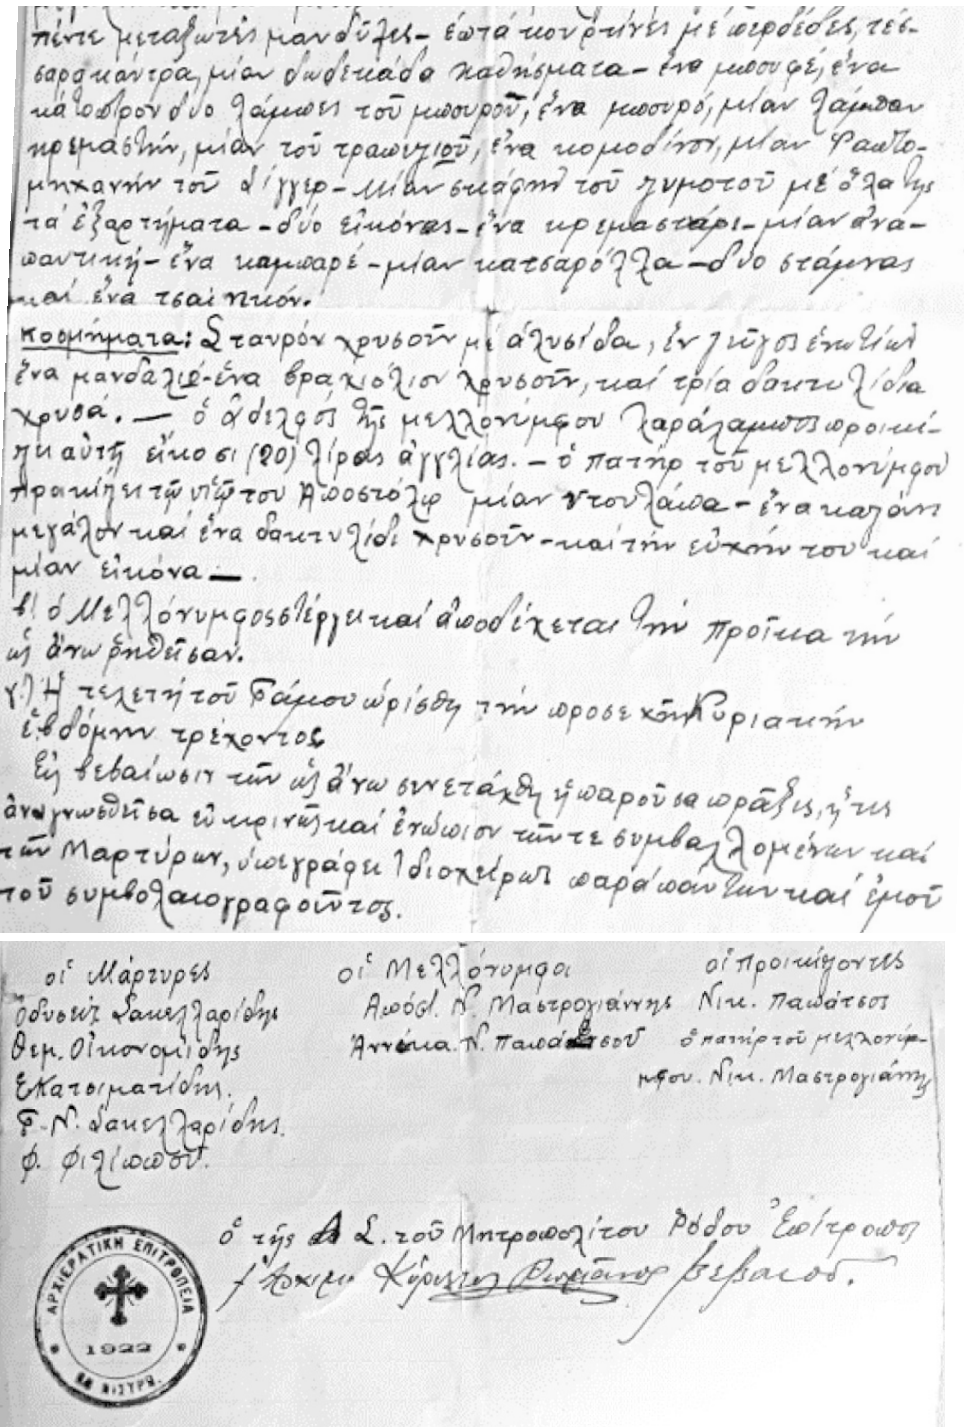 πέντε μεταξωτές μανδύλες – έωτά κουρτίνες μέ περδέδες, τέσ-
σαρα κάντρα, μίαν δωδεκάδα καθήσματα – ένα μπουφέ, ένα
κάτοπτρον δύο λάμπες τοῦ μπουροῦ, ἕνα μπουρό, μίαν λάμπαν
κρεμαστήν, μίαν τοῦ τραπεζιοῦ, ἕνα κομοδίνον, μίαν ραπτο-
μηχανήν τοῦ Σίγγερ – Μίαν σκάφην τοῦ ζυμοτοῦ μέ ὅλα της
τά ἐξαρτήματα – δύο εἰκόνας – ἕνα κρεμαστάρι – μίαν ἀνα-
παντική – ἕνα καμπαρέ – μίαν κατσαρόλλα – δύο στάμνας
καί ἕνα τσαϊνκόν.
Κοσμήματα: Σταυρόν χρυσοῦν μέ ἁλυσίδα, ἕν ζεῦγος ἐνωτίων
ἕνα μανδαλιό – ἕνα βραχιόλιον χρυσοῦν, καί τρία δακτυλίδια
χρυσά. — ὁ ἀδελφός τῆς μελλονύμφου Χαράλαμπος προικί-
ζει αὐτῇ εἴκοσι (20) λίρας ἀγγλίας. – ὁ πατήρ τοῦ μελλονύμφου
προικίζει τῷ υἱῷ του Ἀποστόλῳ μίαν ντουλάπα – ἕνα καζάνι
μεγάλον καί ἕνα δακτυλίδι χρυσοῦν – καί τήν εὐχήν του καί
μίαν εἰκόνα —.
β) ὁ Μελλόνυμφος στέργει καί ἀποδέχεται τήν προῖκα τήν
ὡς ἄνω ῥηθεῖσαν.
γ.) Ἡ τελετή τοῦ Γάμου ὡρίσθη τήν προσεχῆ Κυριακήν
ἑβδόμην τρέχοντος
Εἰς βεβαίωσιν τῶν ὡς ἄνω συνετάχθη ἡ παροῦσα πρᾶξις, ἥτις
ἀναγνωσθεῖσα εὐκρινῶς καί ἐνώπιον τῶν τε συμβαλλομένων καί
τῶν Μαρτύρων, ὑπεγράφει ἰδιοχείρως παρά πάντων καί ἐμοῦ
τοῦ συμβολαιογραφοῦντος.
οἱ Μάρτυρες
Ὀδυσεύς Σακελλαρίδης
Θεμ. Οἰκονομίδης
Ε Κατσιματίδης.
Γ. Ν. Σακελλαρίδης.
Φ. Φιλίππου.
οἱ Μελλόνυμφοι
Ἀπόστ. Ν. Μαστρογιάννης
Ἀννίκα. Ν. Παπάτσου
οἱ προικίζοντες
Νικ. Παπάτσος
ὁ πατήρ τοῦ μελλονύμ-
φου. Νικ. Μαστρογιάννης
ὁ τῆς Α Σ. τοῦ Μητροπολίτου Ῥόδου Ἐπίτροπος
† Ἀρχιμ Κύριλλος Ῥωμάνος βεβαιοῖ.
ΑΡΧΙΕΡΑΤΙΚΗ ΕΠΙΤΡΟΠΕΙΑ
1922
ΕΝ ΝΙΣΥΡΩ.